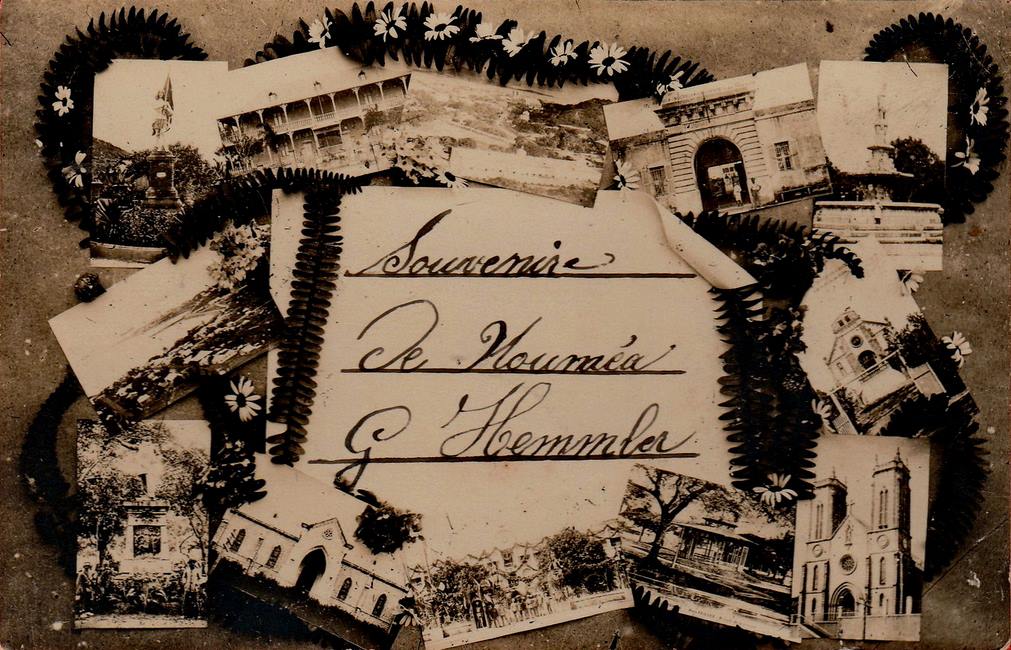 Souvenir
De Nouméa
G Hemmler